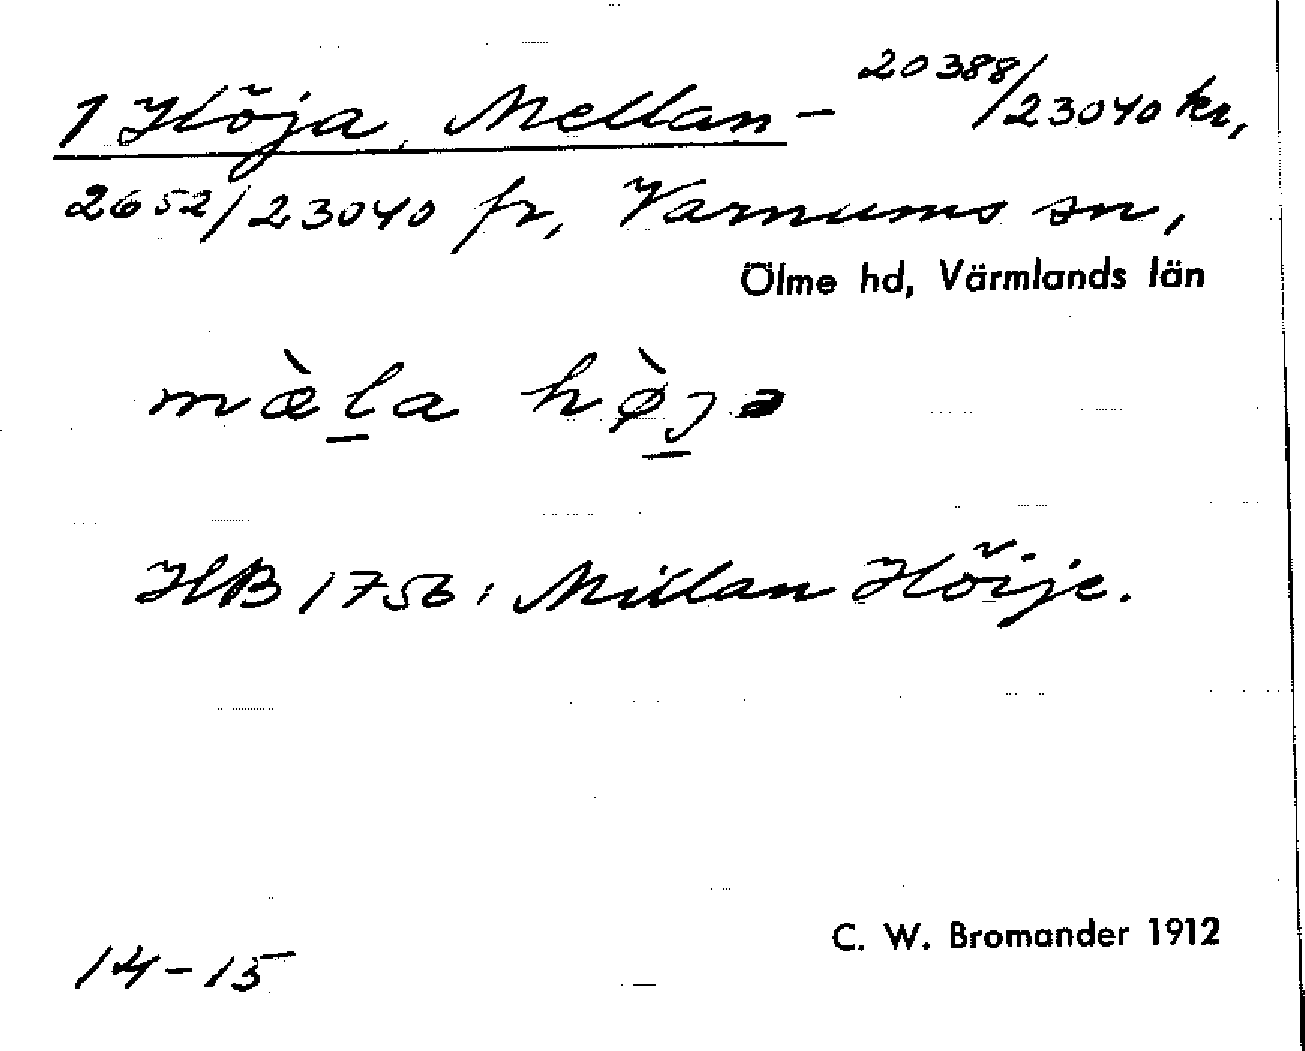 1 Höja, Mellan- 20388/23040 kr,
2652/23040 fr, Varnums sn,
Ölme hd, Värmlands län
mæ̀l̲a hø̀j̲ə
HB 1756: Millan Höije.
C. W. Bromander 1912
14-15